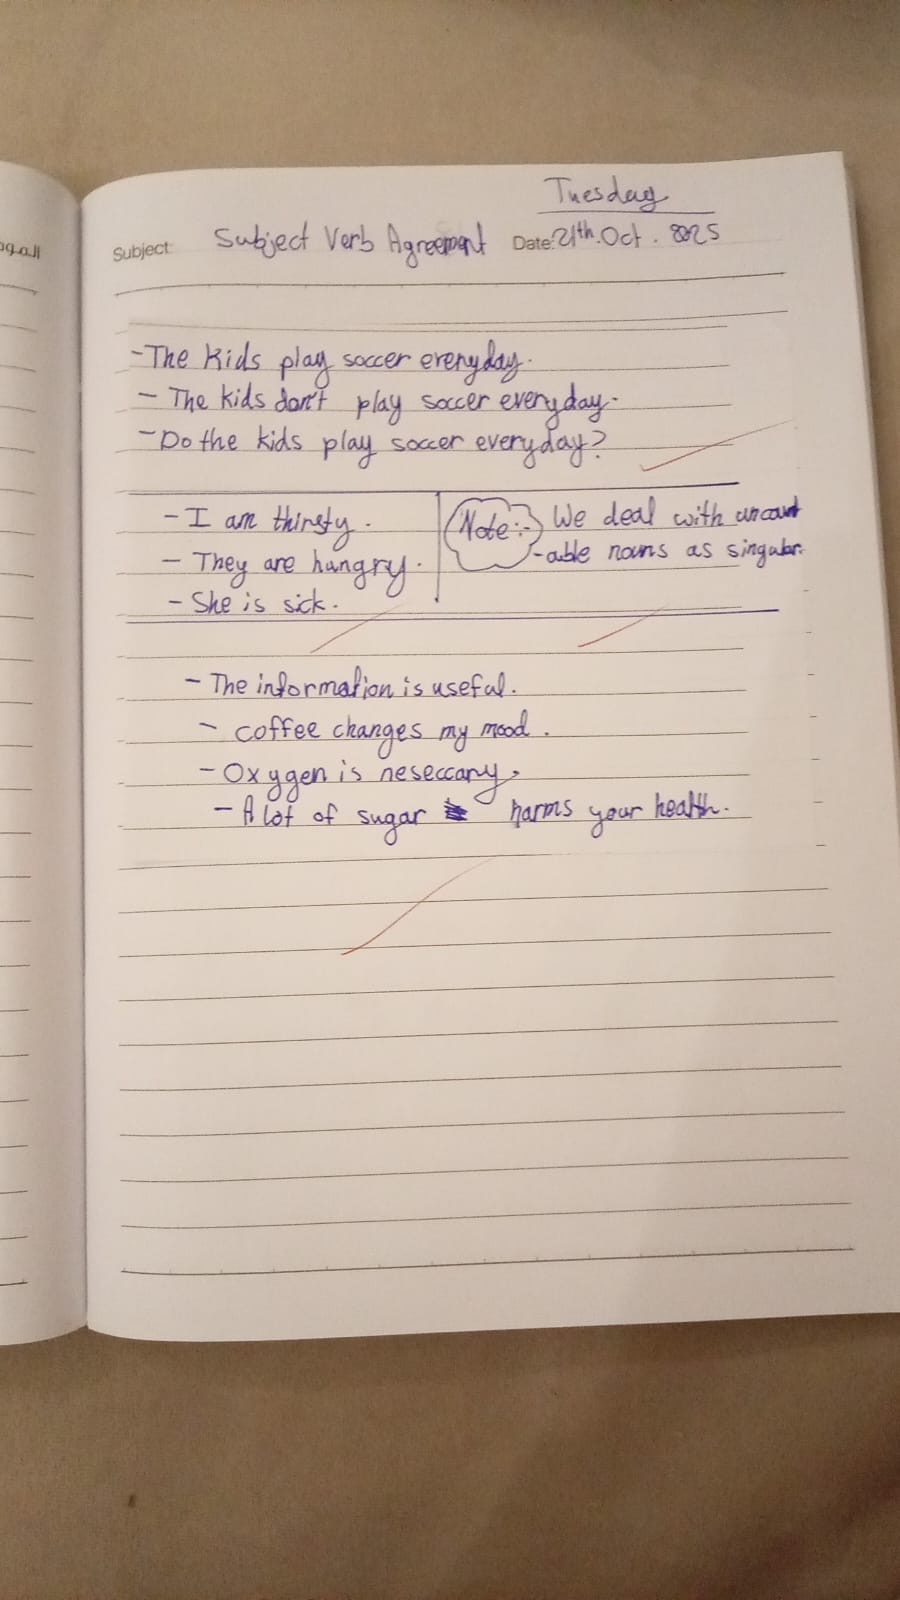 Tuesday
Subject: Subject Verb Agreement Date: 21th. Oct. 2025
- The kids play soccer everyday.
- The kids don't play soccer everyday.
- Do the kids play soccer everyday?
- I am thirsty.
- They are hangry.
- She is sick.
Note:- We deal with uncount
-able nouns as singular.
- The information is useful.
- coffee changes my mood.
- Oxygen is neseccary.
- A lot of sugar harms your health.